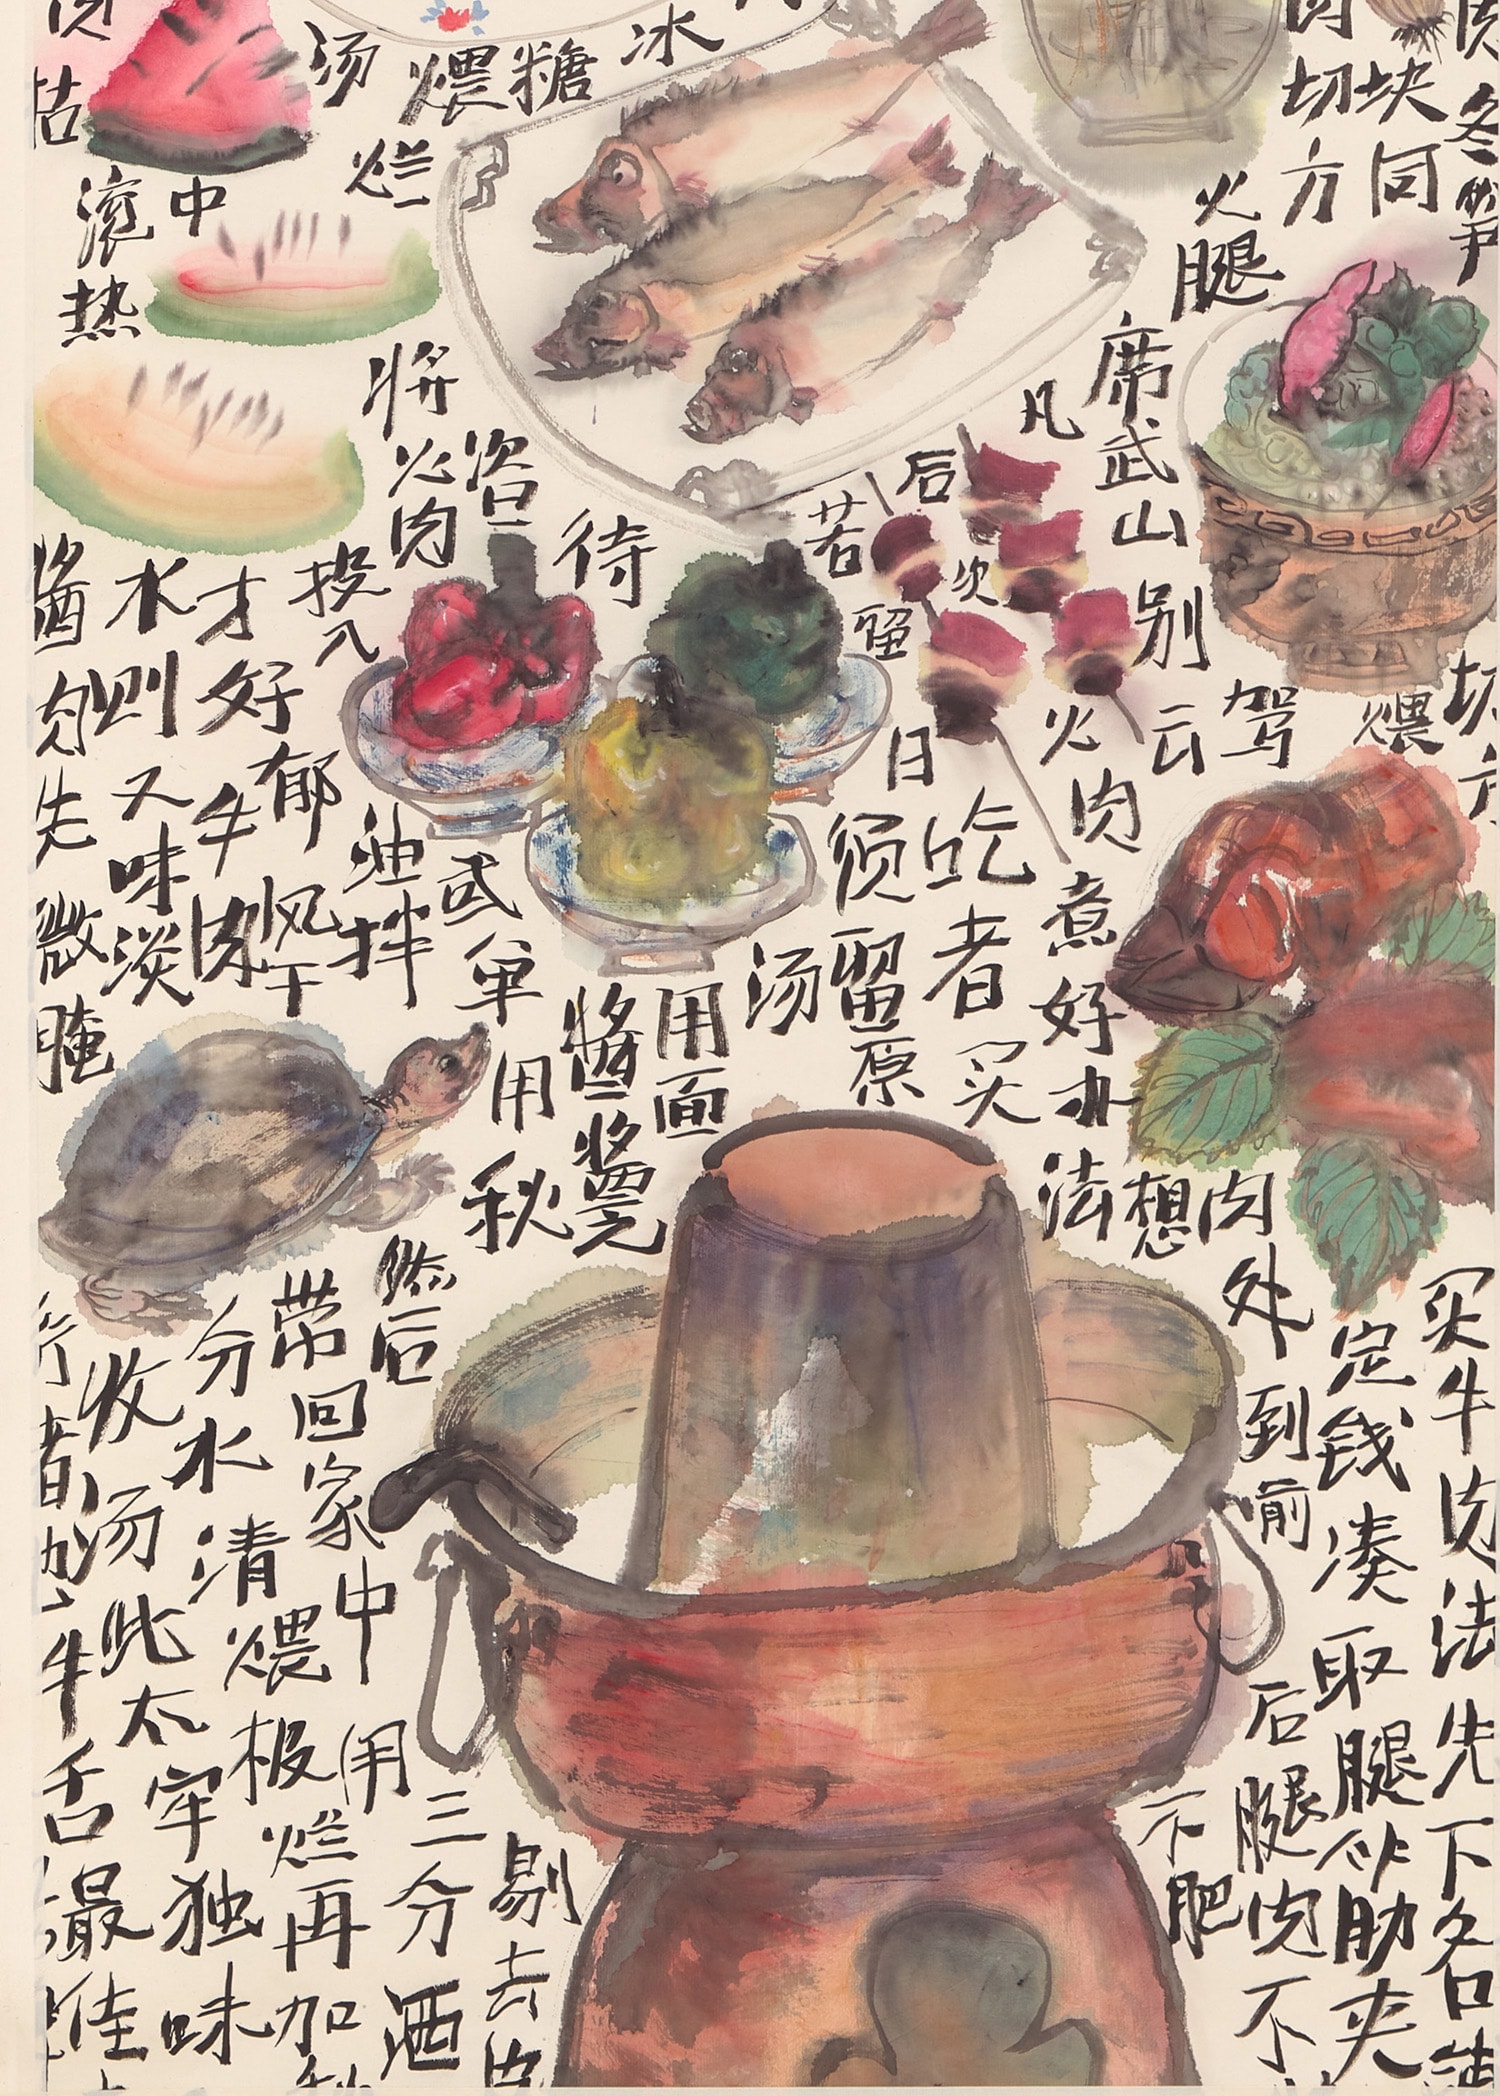 买牛肉法先下各
定钱凑取腿筋夹
肉处到前后腿肉不
想
不肥
然后
带回家中用三分酒
剔去
分水清煨极烂再加
收汤此太牢独味
者加牛舌最佳
冬笋
切块同
肉切方
火腿
煨
席武山别驾云
凡火肉煮好
办法
后
次日吃者买
若留
须留原汤
待
用面
酱
用秋
油拌
将火肉投入
郁
风干
才好牛肉
水则又味淡
酱肉先微腌
冰糖煨烂
汤
中
滚热
枯